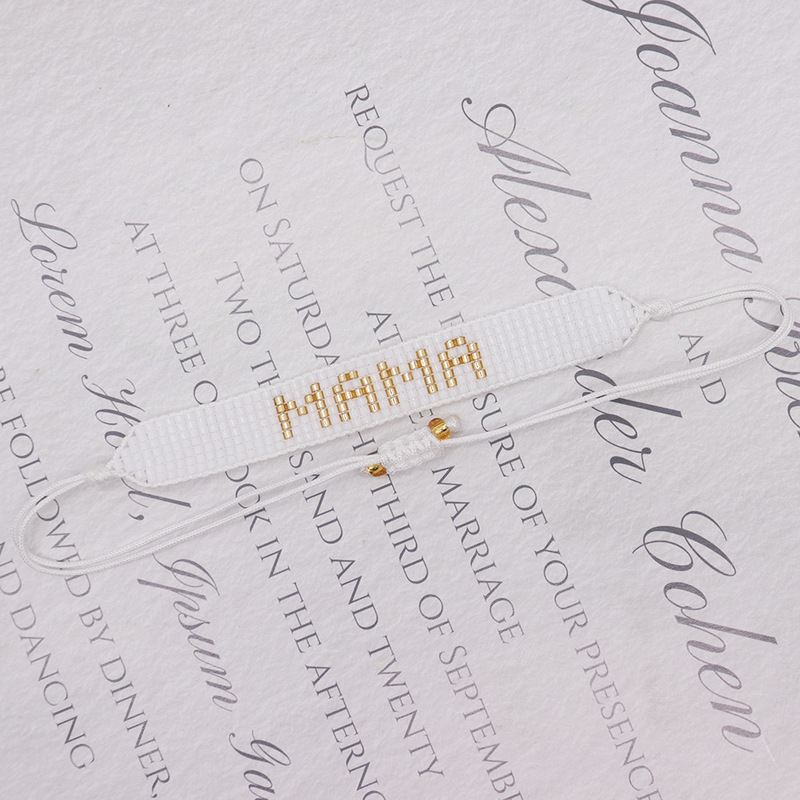 MAMA
Joanna
Alexander Cohen
REQUEST THE
SURE OF YOUR PRESENCE
AT
MARRIAGE
AND
ON SATURDA
THIRD OF SEPTEMB
TWO TH
SAND AND TWENTY
AT THREE O
OCK IN THE AFTERNO
Lorem
Ipsum
FOLLOWED BY DINNER,
AND DANCING